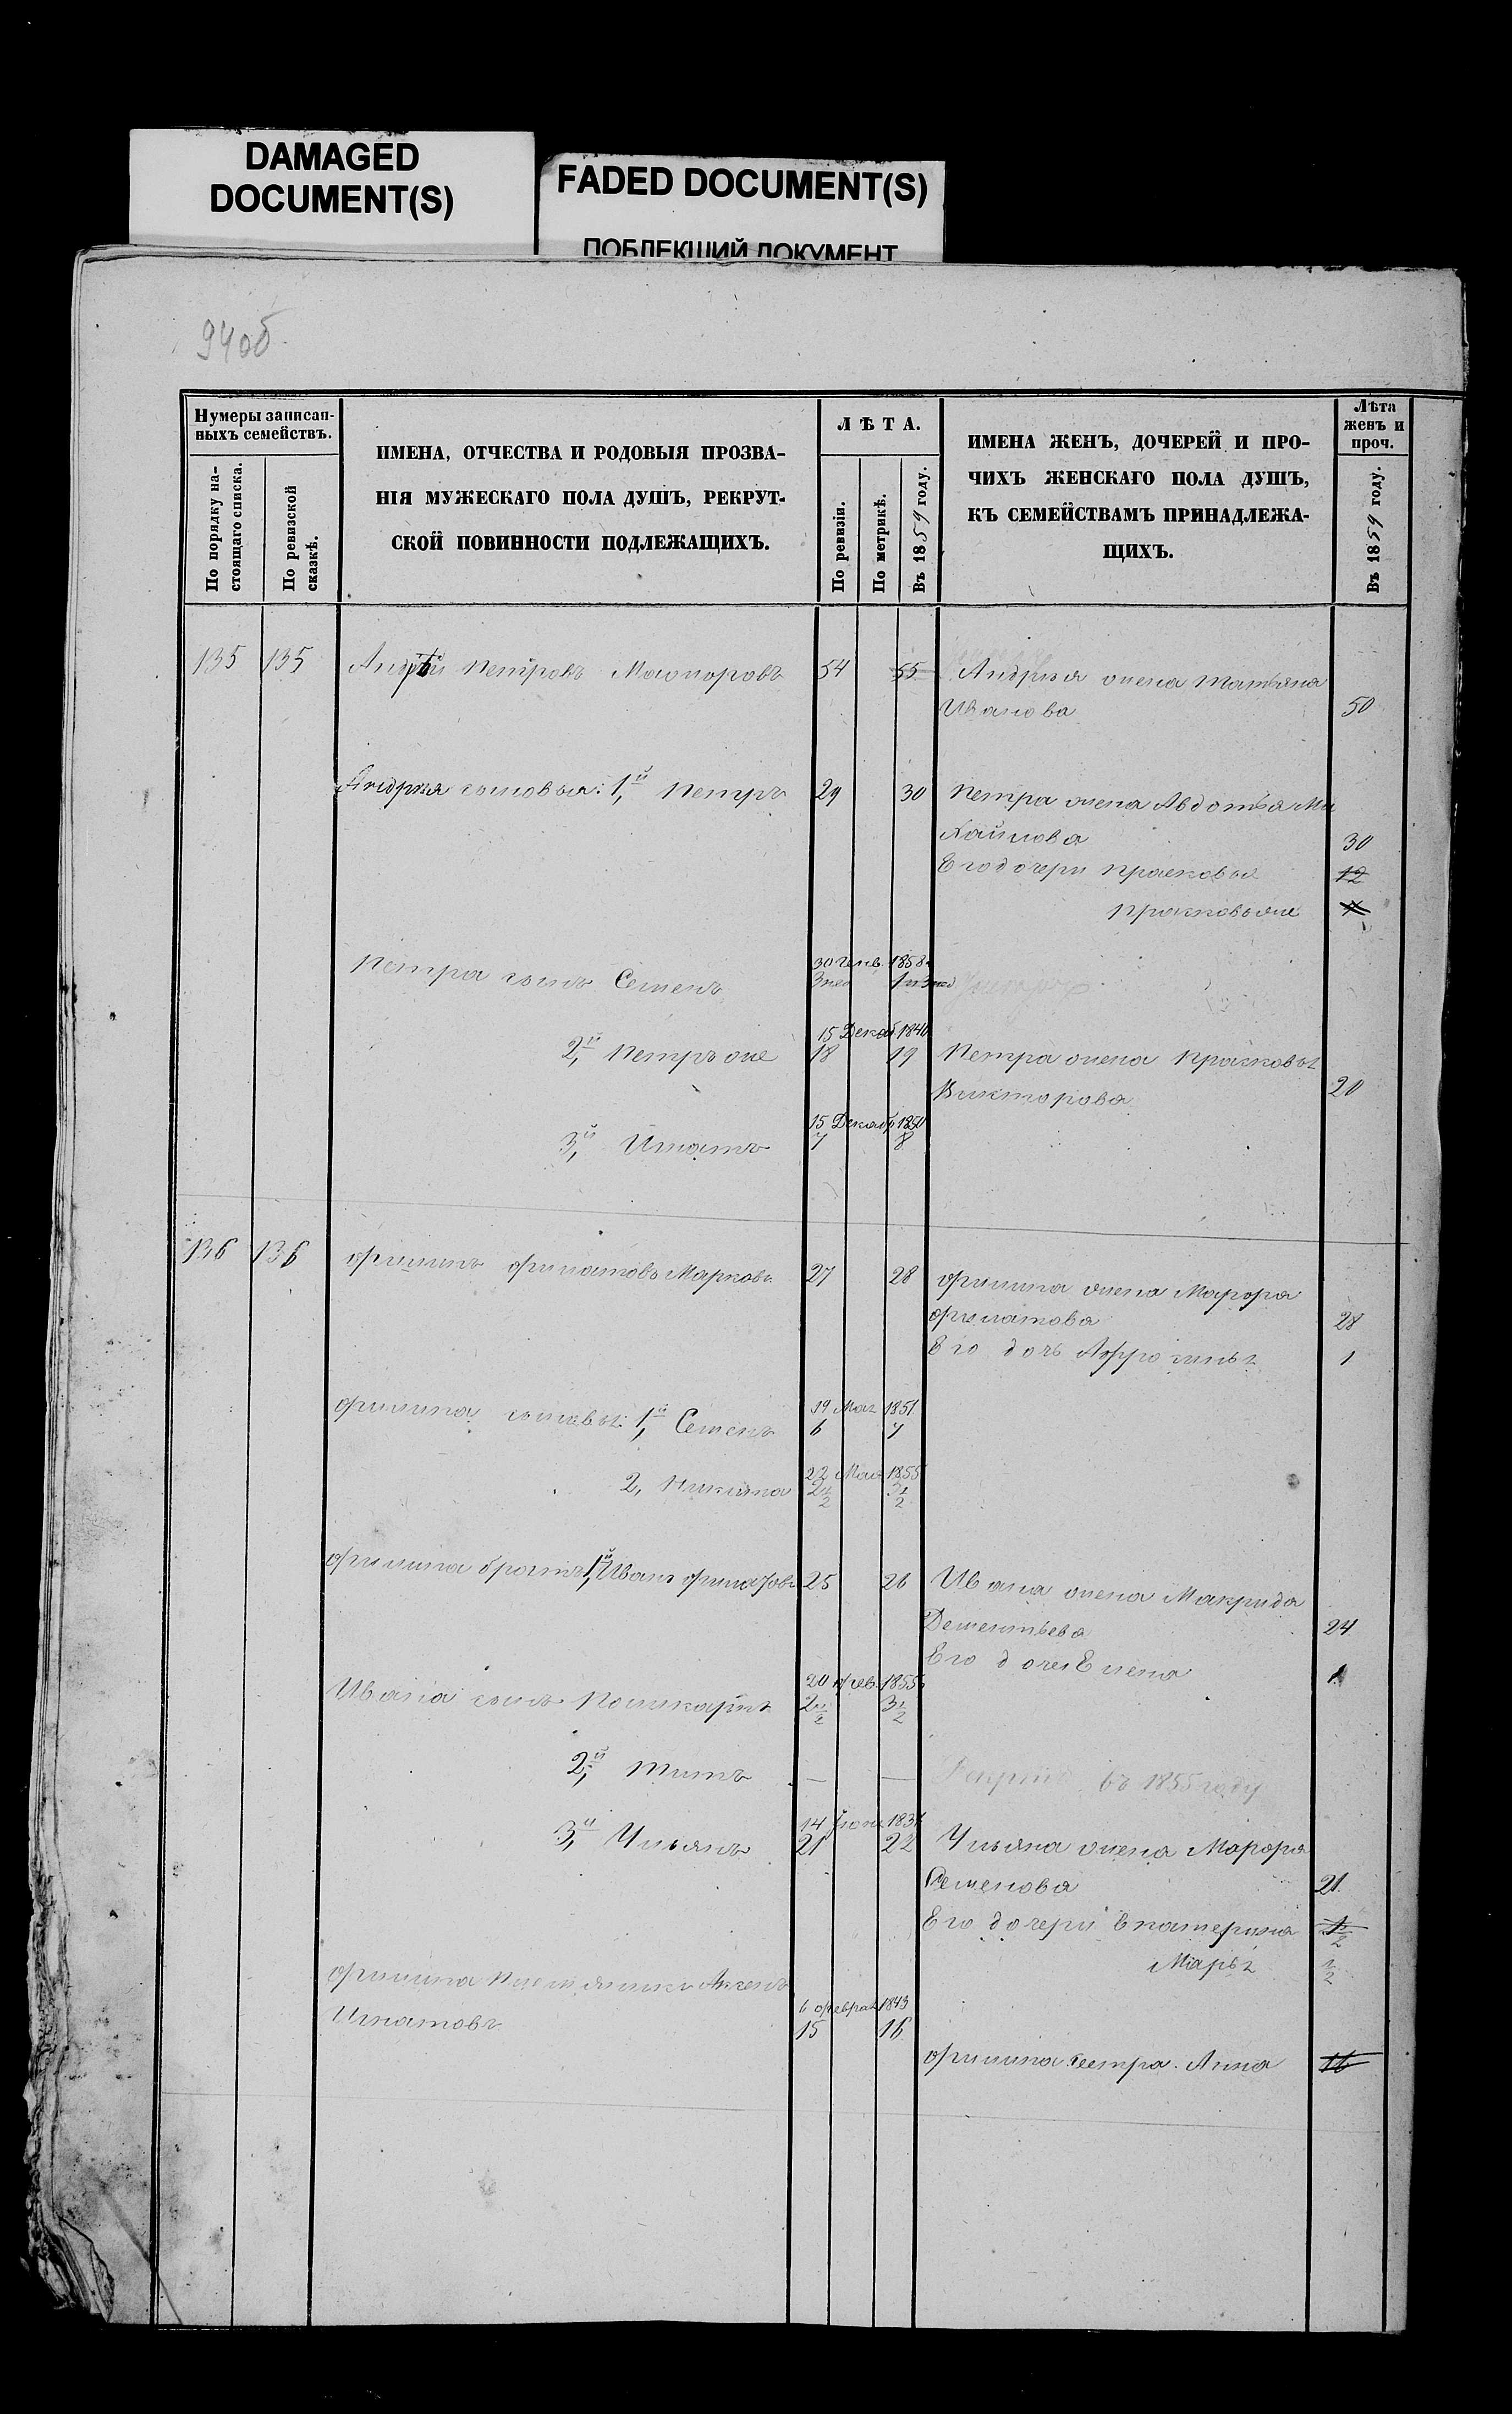 DAMAGED
DOCUMENT(S)
FADED DOCUMENT(S)
ПОБЛЕКШИЙ ДОКУМЕНТ
94об.
Нумеры записан-
ныхъ семействъ.
По порядку на-
стоящаго списка.
По ревизской
сказкѣ.
ИМЕНА, ОТЧЕСТВА И РОДОВЫЯ ПРОЗВА-
НІЯ МУЖЕСКАГО ПОЛА ДУШЪ, РЕКРУТ-
СКОЙ ПОВИННОСТИ ПОДЛЕЖАЩИХЪ.
ЛѢТА.
По ревизіи.
По метрикѣ.
Въ 1859 году.
ИМЕНА ЖЕНЪ, ДОЧЕРЕЙ И ПРО-
ЧИХЪ ЖЕНСКАГО ПОЛА ДУШЪ,
КЪ СЕМЕЙСТВАМЪ ПРИНАДЛЕЖА-
ЩИХЪ.
Лѣта
женъ и
проч.
Въ 1859 году.
135 135 Андрѣй Петровъ 54 55 Андрея жена Татьяна
Иванова 50
Андрея сыновья: 1й Петръ 29 30 Петра жена Авдотья Ми
хайлова 30
Его дочери Прасковья 12
Прасковья же
30 Генв. 1858
Петра сынъ Семенъ 3 нед
15 Декаб. 1840
2й Петръ же 18 19 Петра жена Прасковья
Викторова 20
15 Декаб. 1850
3й Игнатъ 7 8
136 136 Филипъ Филатовъ Марковъ 27 28 Филипа жена Марфа
Филатова 28
Его дочь Афросинья 1
19 Мая 1851
Филипа сыновья: 1й Семенъ 6 7
22 Мая 1855
2, Никита 2½ 3½
Филипа братья 1й Иванъ Филатовъ 25 26 Ивана жена Макрида
Дементьева 24
Его дочь Елена 1
20 Фев. 1855
Ивана сынъ Поликарпъ 2½ 3½
2й Титъ — — въ 1855 году
14 Іюня 1837
3й Ульянъ 21 22 Ульяна жена Марфа
Семенова 21
Его дочери Екатерина 1½
Марья ½
Филипа
6 Февраля 1843
Игнатовъ 15 16
Филипа сестра Анна 16